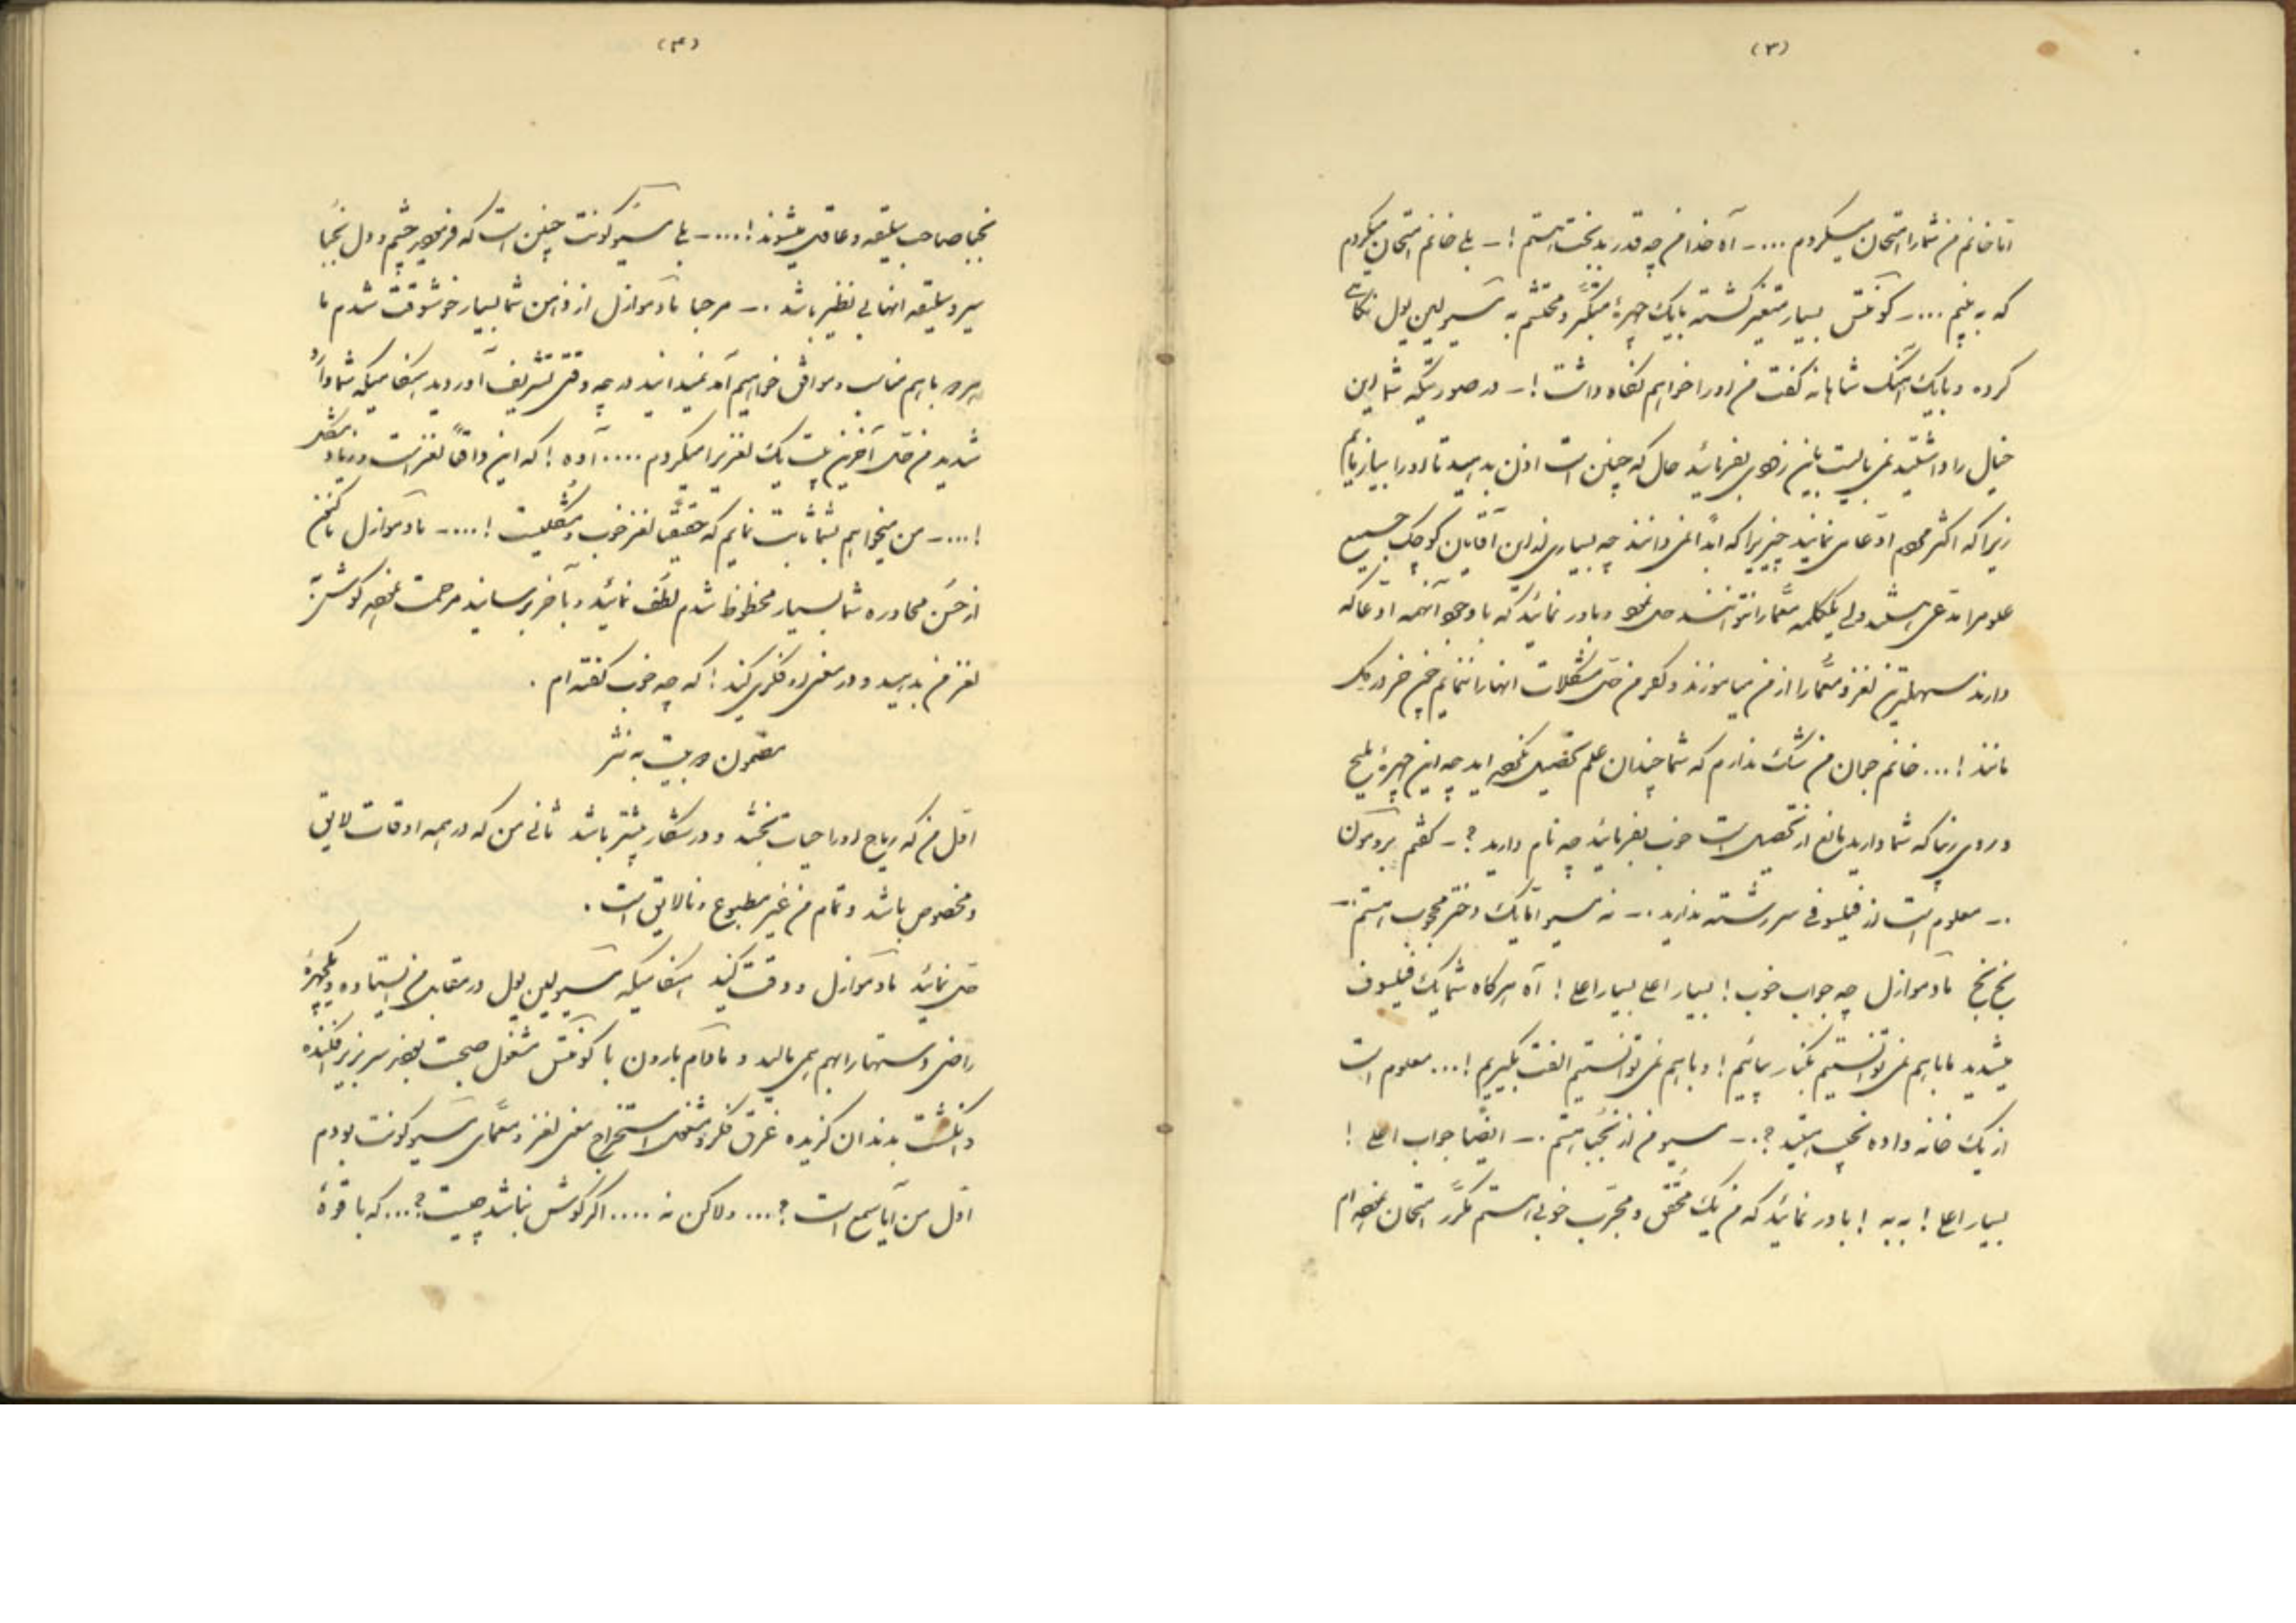 (۳)
اما خانم من شما را امتحان میکردم .... ـ آه خدا من چه قدر بدبخت هستم ! ـ بلی خانم امتحان میکردم
که به بینم .... ـ کونتس بسیار متغیر گشته با یک چهرهٔ متکبر و محتشم به مسیو لبن پول نگاهی
کرده و با یک آهنگ شاهانه گفت من او را خواهم نگاه داشت ! ـ در صورتیکه شما این
خیال را داشتید نمی بایست باین زودی بفرمائید حال که چنین است اذن بدهید تا او را بیازمایم
زیرا که اکثر مردم ادعا می نمایند چیزیرا که ابداً نمی دانند چه بسیاری از این آقایان کوچک جمیع
علوم را مدعی هستند ولی یککلمه معما را نتوانند حل نمود و باور نمائید که با وجود آنهمه ادعا که
دارند سهلترین لغز و معما را از من میاموزند و اگر من حل مشکلات انها را ننمایم چون خر در وحل
مانند ! ... خانم جمان من شک ندارم که شما چندان علم تحصیل نکرده اید چه این چهرهٔ ملیح
و روی زیبا که شما دارید مانع از تحصیل است خوب بفرمائید چه نام دارید ؟ ـ گفتم برومون
. ـ معلوم است از فیلسوفی سررشته ندارید . ـ نه مسیو اما یک دختر محجوب هستم . ـ
بخ بخ مادموازل چه جواب خوب ! بسیار اعلی بسیار اعلی ! آه هر گاه شما یک فیلسوف
میشدید ما با هم نمی توانستیم بکنار بیائیم ! و با هم نمی توانستیم الفت بگیریم ! ... معلوم است
از یک خانه واده نجیب هستید ؟ . ـ مسیو من از نجبا هستم . ـ ایضاً جواب اعلی !
بسیار اعلی ! به به ! باور نمائید که من یک محقق و مجرب خوبی هستم مکرر امتحان نموده ام
(۴)
نجبا صاحب سلیقه و عاقل میشوند ! .... ـ بلی مسیو کونت چنین است که فرمودید چشم و دل نجبا
سیر و سلیقه انها بی نظیر باشد . ـ مرحبا مادموازل از ذهن شما بسیار خوشوقت شدم ما
هر دو با هم مناسب و موافق خواهیم آمد نمیدانید در چه وقتی تشریف آوردید هنگامیکه شما وارد
شدید من حتی آخرین بیت یک لغزیرا میکردم .... آوه ! که این واقعاً لغز است و زیاد مشکل
! .... ـ من میخواهم بشما ثابت نمایم که حقیقتاً لغز خوب و مشکلیست ! .... ـ مادموازل
از حسن محاوره شما بسیار محظوظ شدم لطف نمائید و بآخر برسانید مرحمت نموده گوش به
لغز من بدهید و در معنی او فکری کنید ! که چه خوب گفته ام .
مضمون دو بیت به نثر
اول من که ریاح او را حیات بخشد و در شکار بیشتر باشد ثانی من که در همه اوقات لایق
و مخصوص باشد و تمام من غیر مطبوع و نالایق است .
حل نمائید مادموازل و دقت کنید هنگامیکه مسیو لبن پول در مقابل من ایستاده و بچهرهٔ
راضی دستها را بهم می مالید و مادام بارون با کونتس مشغول صحبت بودند سر بزیر افکنده
و انگشت بدندان گزیده غرق فکر و مشغول استخراج معنی لغز و معمای مسیو کونت بودم
اول من آیا سمع است ؟ ... ولاکن نه .... اگر گوش نباشد چیست ؟ ... که با قوهٔ